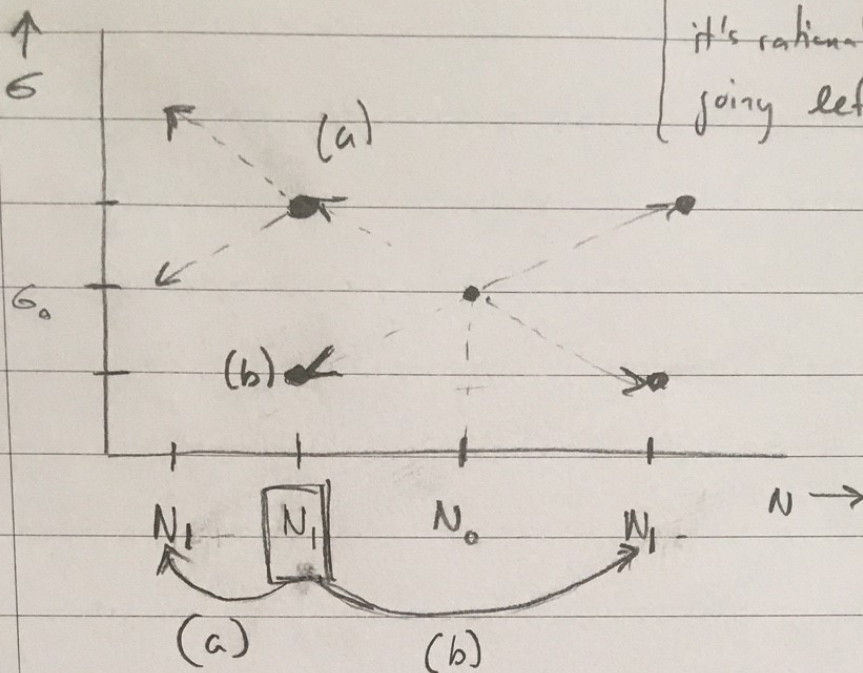 it's rational
going lef
σ
(a)
σ₀
(b)
N₁ N₁ N₀ N₁
N →
(a) (b)